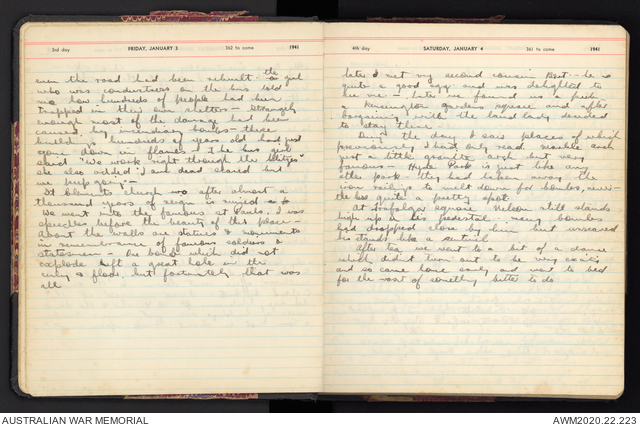 3rd day FRIDAY, JANUARY 3 362 to come 1941
even the road had been rebuilt - the girl
who was conductress on the bus told
me how hundreds of people had been
trapped in their own shelters - strangely
enough most of the damage had been
caused by incendiary bombs - these
buildings hundreds of years old had just
gone down in flames - & the bus girl
said "We work right through the blitzes"
she also added "I am dead scared but
we keep going" -
St Clements church too after almost a
thousand years of reign is ruined so to
We went into the famous St Pauls. I was
speechless before the beauty of this place -
about the walls are statues & monuments
in remembrance of famous soldiers &
statesmen - the bomb which did not
explode left a great hole in the
ceiling & floor, but fortunately that was
all
4th day SATURDAY, JANUARY 4 361 to come 1941
later I met my second cousin Bert - he is
quite a good egg and was delighted to
see me - later we found us a
in Kensington Gardens square and after
bargaining with the land lady decided
to stay there.
During the day I saw places of which
previously I had only read. Marble arch
just a little arch but very
famous - Hyde Park is just like any
other park they had taken away the
iron railings to melt down for bombs,
quite a pretty spot.
At Trafalgar square Nelson still stands
high up on his pedestal - many bombs
had dropped close by him but unscared
he stands like a sentinel.
After tea we went to a bit of a dance
which didn't turn out to be very exciting
and so came home early and went to bed
for the want of something better to do
AUSTRALIAN WAR MEMORIAL
AWM2020.22.223